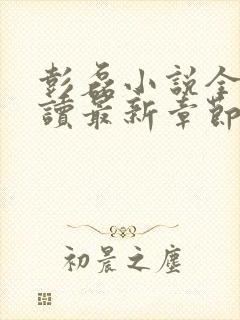 彭磊小說全
讀最新章節
初晨之塵